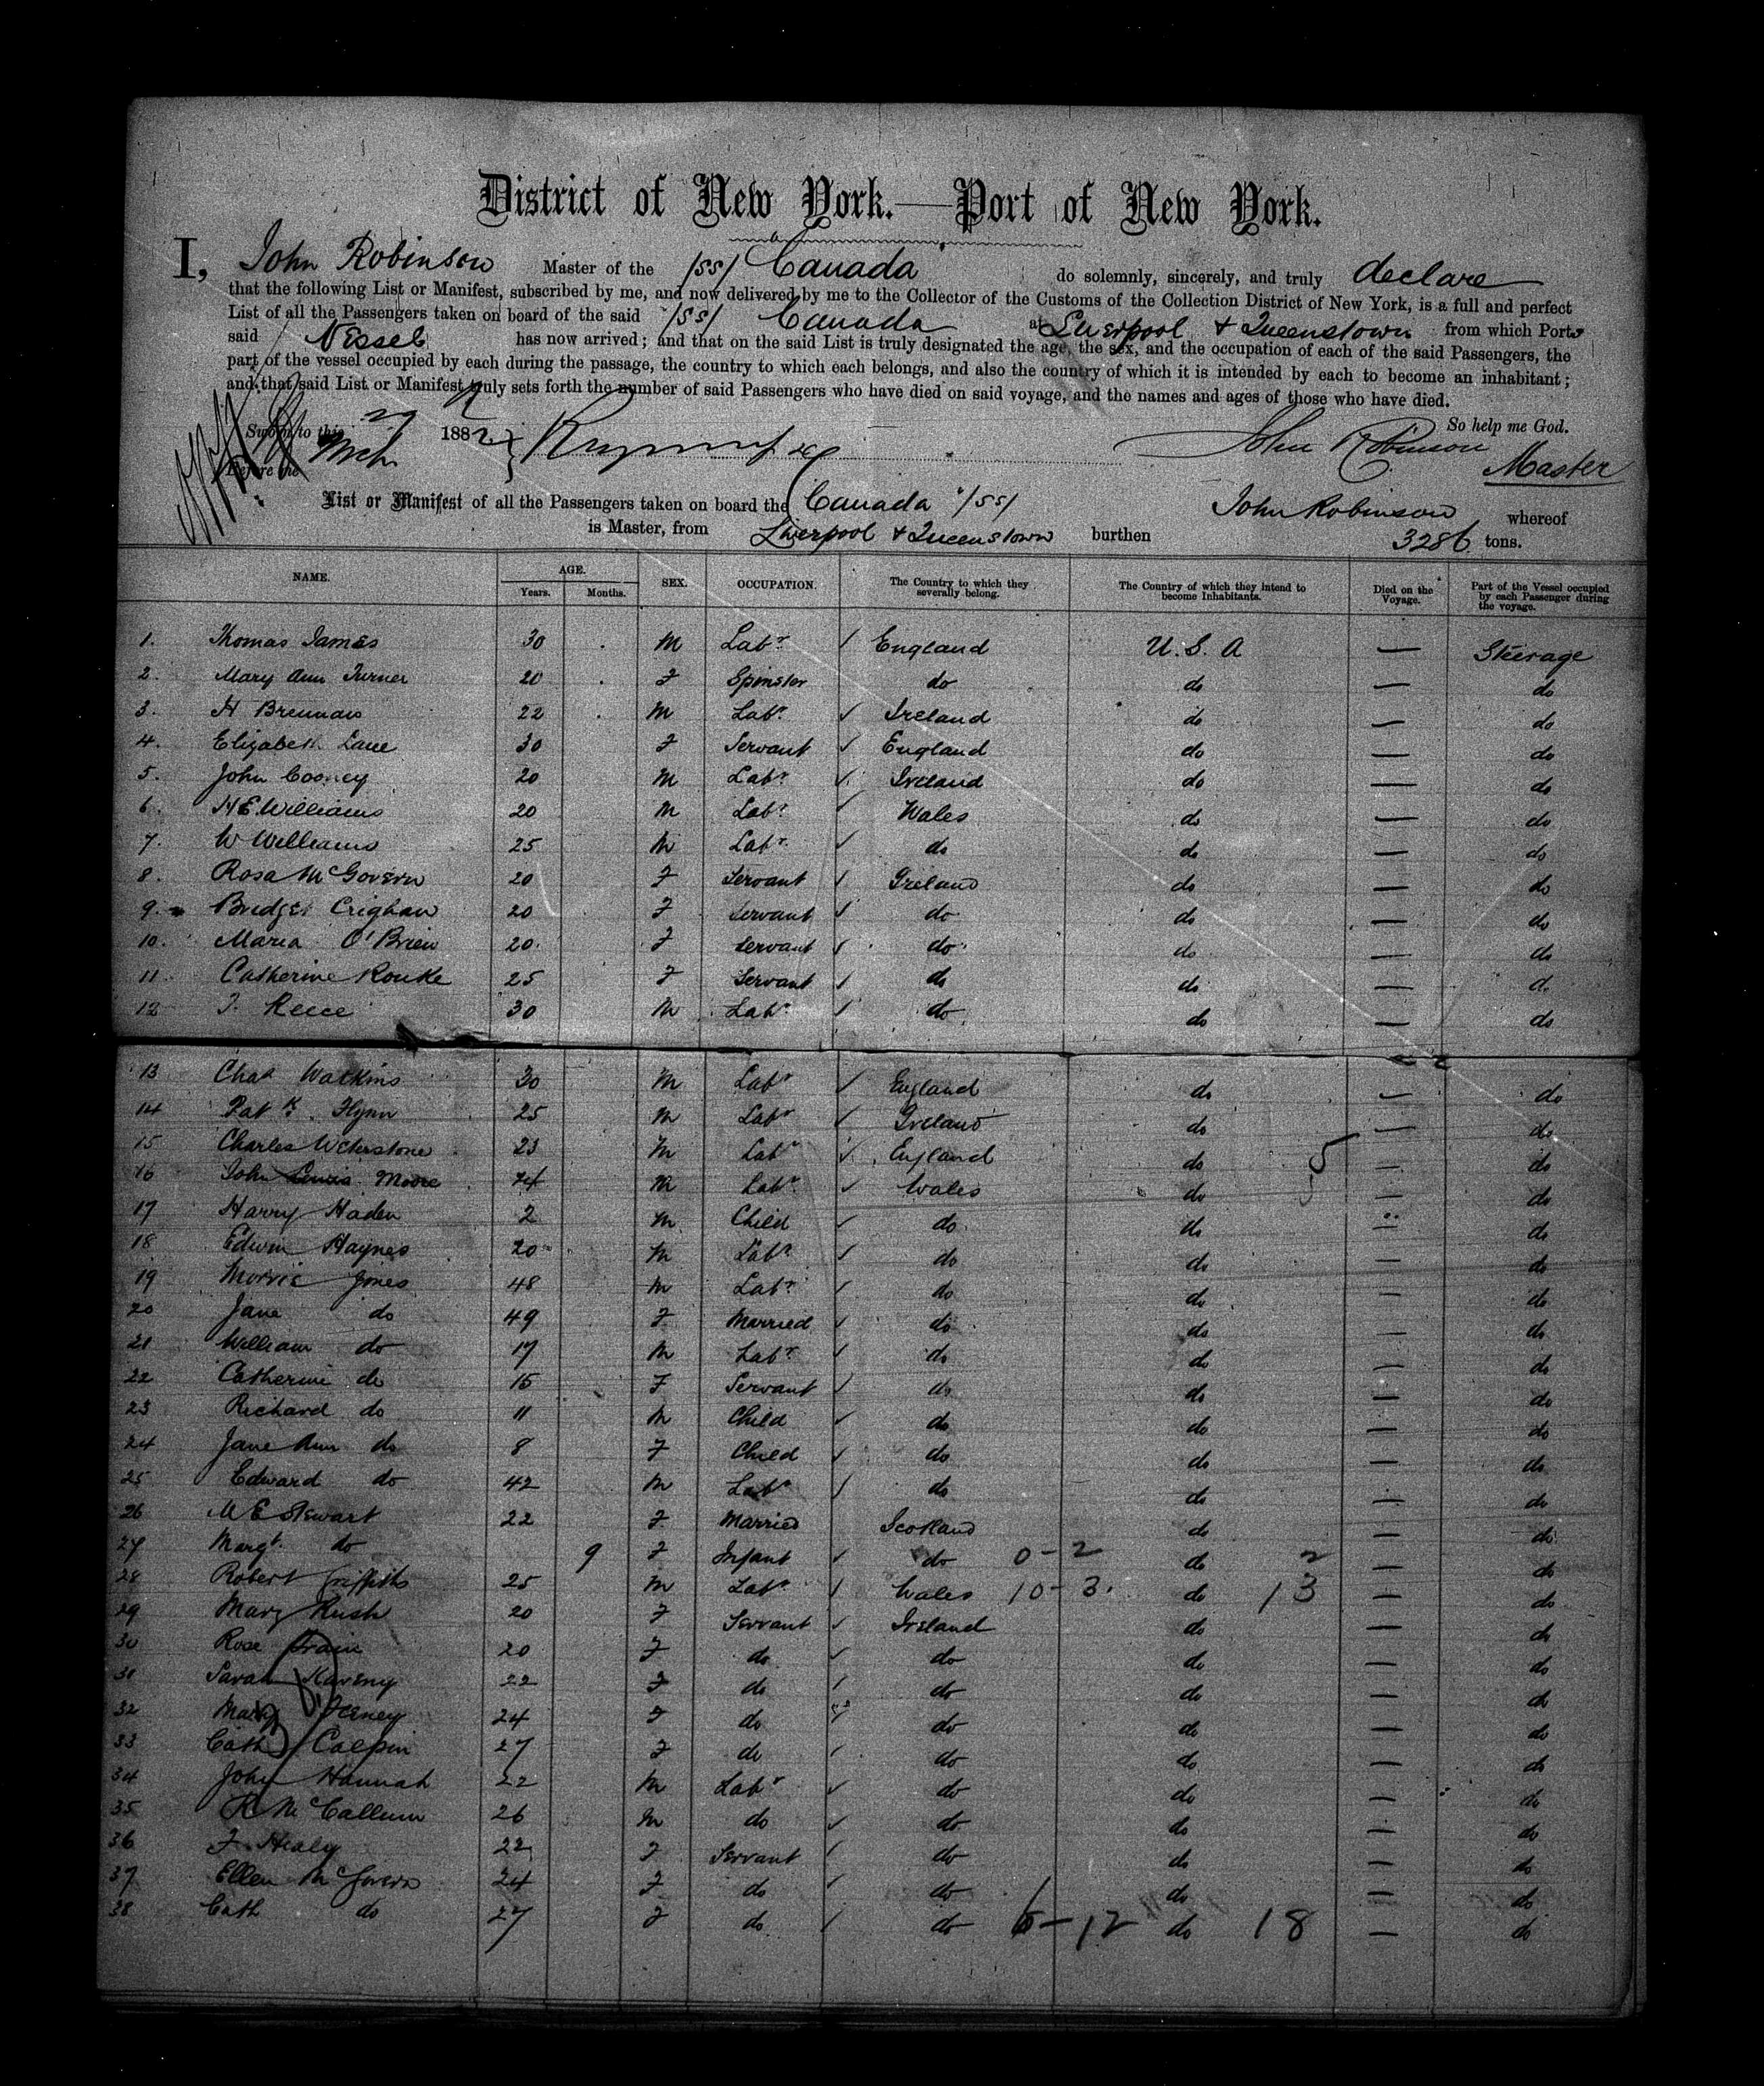 District of New York.—Port of New York.
I, John Robinson Master of the /SS/ Canada do solemnly, sincerely, and truly declare
that the following List or Manifest, subscribed by me, and now delivered by me to the Collector of the Customs of the Collection District of New York, is a full and perfect
List of all the Passengers taken on board of the said /SS/ Canada at Liverpool & Queenstown from which Ports
said Vessel has now arrived; and that on the said List is truly designated the age, the sex, and the occupation of each of the said Passengers, the
part of the vessel occupied by each during the passage, the country to which each belongs, and also the country of which it is intended by each to become an inhabitant;
and that said List or Manifest truly sets forth the number of said Passengers who have died on said voyage, and the names and ages of those who have died.
So help me God.
Sworn to this 29 1882
Mch
Before me
John Robinson
Master
List or Manifest of all the Passengers taken on board the Canada /SS/ John Robinson whereof
is Master, from Liverpool & Queenstown burthen 3286 tons.
NAME. AGE. Years. Months. SEX. OCCUPATION. The Country to which they severally belong. The Country of which they intend to become Inhabitants. Died on the Voyage. Part of the Vessel occupied by each Passenger during the voyage.
1. Thomas James 30 M Labr England U.S.A — Steerage
2. Mary Ann Turner 20 F Spinster do do — do
3. H Brennan 22 M Labr Ireland do — do
4. Elizabeth Lane 30 F Servant England do — do
5. John Cooney 20 M Labr Ireland do — do
6. H E Williams 20 M Labr Wales do — do
7. W Williams 25 M Labr do do — do
8. Rosa McGovern 20 F Servant Ireland do — do
9. Bridget Crighan 20 F Servant do do — do
10. Maria O'Brien 20 F Servant do do — do
11. Catherine Rouke 25 F Servant do do — do
12 T. Reece 30 M Labr do do — do
13 Chas Watkins 30 M Labr England do — do
14 Patk. Flynn 25 M Labr Ireland do — do
15 Charles Weterstone 23 M Labr England do — do
16 John Lewis Moore 24 M Labr Wales do — do
17 Harry Haden 2 M Child do do — do
18 Edwin Haynes 20 M Labr do do — do
19 Morris Jones 48 M Labr do do — do
20 Jane do 49 F Married do do — do
21 William do 17 M Labr do do — do
22 Catherine do 15 F Servant do do — do
23 Richard do 11 M Child do do — do
24 Jane Ann do 8 F Child do do — do
25 Edward do 42 M Labr do do — do
26 M E Stewart 22 F Married Scotland do — do
27 Margt. do 9 F Infant do 0-2 do 2 — do
28 Robert Griffiths 25 M Labr Wales 10-3. do 13 — do
29 Mary Rush 20 F Servant Ireland do — do
30 Rose 20 F do do do — do
31 Sarah 22 F do do do — do
32 Mary 24 F do do do — do
33 Cath 27 F do do do — do
34 John Hannah 22 M Labr do do — do
35 R McCallum 26 M do do do — do
36 F Healy 22 F Servant do do — do
37 Ellen McGovern 24 F do do do — do
38 Cath do 27 F do do 6-12 do 18 — do